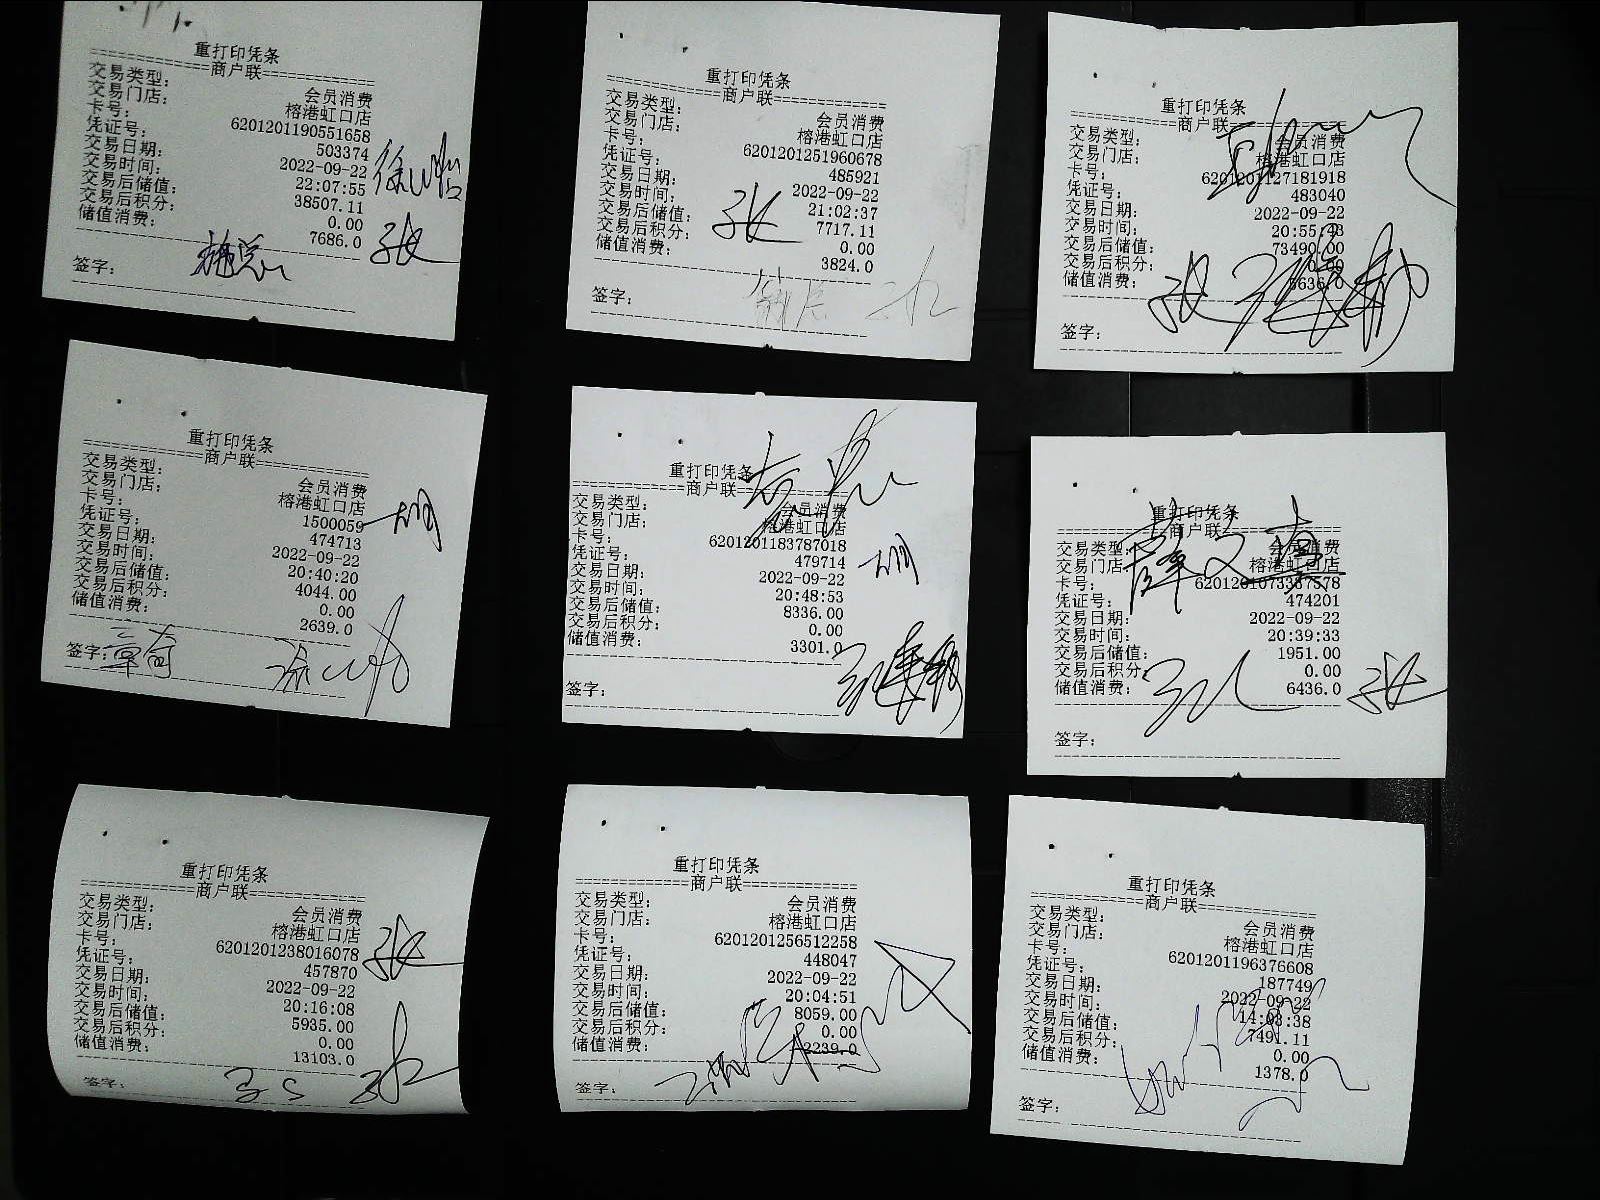 重打印凭条
============商户联============
交易类型: 会员消费
交易门店: 榕港虹口店
卡号: 6201201190551658
凭证号: 503374
交易日期: 2022-09-22
交易时间: 22:07:55
交易后储值: 38507.11
交易后积分: 0.00
储值消费: 7686.0
签字:
重打印凭条
============商户联============
交易类型: 会员消费
交易门店: 榕港虹口店
卡号: 6201201251960678
凭证号: 485921
交易日期: 2022-09-22
交易时间: 21:02:37
交易后储值: 7717.11
交易后积分: 0.00
储值消费: 3824.0
张
签字:
重打印凭条
============商户联============
交易类型: 会员消费
交易门店: 榕港虹口店
卡号: 6201201127181918
凭证号: 483040
交易日期: 2022-09-22
交易时间: 20:55:43
交易后储值: 73490.00
交易后积分: 0.00
储值消费: 5636.0
签字:
重打印凭条
============商户联============
交易类型: 会员消费
交易门店: 榕港虹口店
卡号: 1500059
凭证号: 474713
交易日期: 2022-09-22
交易时间: 20:40:20
交易后储值: 4044.00
交易后积分: 0.00
储值消费: 2639.0
签字:
重打印凭条
============商户联============
交易类型: 会员消费
交易门店: 榕港虹口店
卡号: 6201201183787018
凭证号: 479714
交易日期: 2022-09-22
交易时间: 20:48:53
交易后储值: 8336.00
交易后积分: 0.00
储值消费: 3301.0
签字:
重打印凭条
============商户联============
交易类型: 会员消费
交易门店: 榕港虹口店
卡号: 6201201073367578
凭证号: 474201
交易日期: 2022-09-22
交易时间: 20:39:33
交易后储值: 1951.00
交易后积分: 0.00
储值消费: 6436.0
张
签字:
重打印凭条
============商户联============
交易类型: 会员消费
交易门店: 榕港虹口店
卡号: 6201201238016078
凭证号: 457870
交易日期: 2022-09-22
交易时间: 20:16:08
交易后储值: 5935.00
交易后积分: 0.00
储值消费: 13103.0
张
签字:
重打印凭条
============商户联============
交易类型: 会员消费
交易门店: 榕港虹口店
卡号: 6201201256512258
凭证号: 448047
交易日期: 2022-09-22
交易时间: 20:04:51
交易后储值: 8059.00
交易后积分: 0.00
储值消费: 2239.0
签字:
重打印凭条
============商户联============
交易类型: 会员消费
交易门店: 榕港虹口店
卡号: 6201201196376608
凭证号: 187749
交易日期: 2022-09-22
交易时间: 14:03:38
交易后储值: 7491.11
交易后积分: 0.00
储值消费: 1378.0
签字: